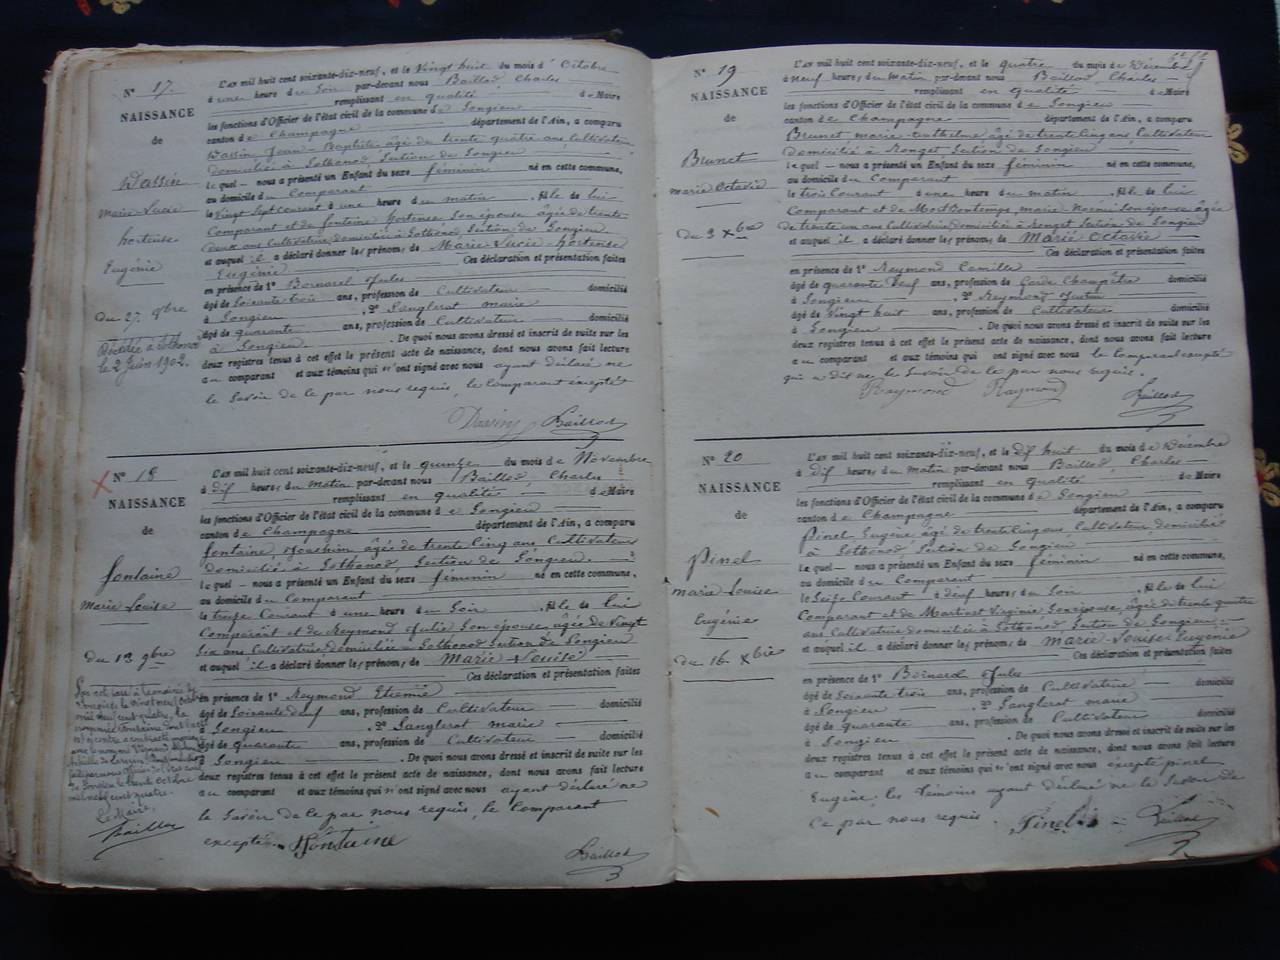 N° 17.
NAISSANCE
de
Dassin
Marie Lucie
hortense
Eugénie
du 27. 8bre
Décédée à Sothonod
le 2 Juin 1902.
L'an mil huit cent soixante-dix-neuf, et le Vingt huit du mois d'Octobre
à une heure du Soir par-devant nous Baillod Charles
remplissant en qualité de Maire
les fonctions d'Officier de l'état civil de la commune de Songieu
canton de Champagne département de l'Ain, a comparu
Dassin Jean Baptiste âgé de trente quatre ans Cultivateur
domicilié à Sothonod Section de Songieu
le quel nous a présenté un Enfant du sexe féminin né en cette commune,
au domicile du Comparant
le Vingt Sept courant à une heure du matin, fille de lui
Comparant et de fontaine hortense Son épouse âgée de trente
deux ans Cultivatrice domiciliée à Sothonod Section de Songieu
et auquel il a déclaré donner les prénoms de Marie Lucie hortense
Eugénie Ces déclaration et présentation faites
en présence de 1° Bornard Jules
âgé de Soixante trois ans, profession de Cultivateur domicilié
à Songieu, 2° Sanglerat marie
âgé de quarante ans, profession de Cultivateur domicilié
à Songieu. De quoi nous avons dressé et inscrit de suite sur les
deux registres tenus à cet effet le présent acte de naissance, dont nous avons fait lecture
au comparant et aux témoins qui n'ont signé avec nous ayant déclaré ne
le Savoir de le par nous requis, le Comparant excepté
Dassin Baillod
N° 18
NAISSANCE
de
fontaine
Marie Louise
du 13 9bre
Le Maire,
Baillod
L'an mil huit cent soixante-dix-neuf, et le quinze du mois de Novembre
à dix heures du matin par-devant nous Baillod, Charles
remplissant en qualité de Maire
les fonctions d'Officier de l'état civil de la commune de Songieu
canton de Champagne département de l'Ain, a comparu
fontaine, Joachim âgé de trente Cinq ans Cultivateur
domicilié à Sothonod, Section de Songieu.
le quel nous a présenté un Enfant du sexe féminin né en cette commune,
au domicile du Comparant
le treize Courant à une heure du Soir, fille de lui
Comparant et de Reymond Julie Son épouse âgée de Vingt
Six ans Cultivatrice domiciliée à Sothonod Section de Songieu
et auquel il a déclaré donner les prénoms de Marie Louise
Ces déclaration et présentation faites
en présence de 1° Reymond Etienne
âgé de Soixante deux ans, profession de Cultivateur domicilié
à Songieu 2° Sanglerat marie
âgé de quarante ans, profession de Cultivateur domicilié
à Songieu. De quoi nous avons dressé et inscrit de suite sur les
deux registres tenus à cet effet le présent acte de naissance, dont nous avons fait lecture
au comparant et aux témoins qui n'ont signé avec nous ayant déclaré ne
le Savoir de le par nous requis, le Comparant
excepté. Fontaine
Baillod
N° 19
NAISSANCE
de
Brunet
marie Octavie
du 3 Xbre
L'an mil huit cent soixante-dix-neuf, et le quatre du mois de Décembre
à neuf heures du matin par-devant nous Baillod Charles
remplissant en qualité de Maire
les fonctions d'Officier de l'état civil de la commune de Songieu
canton de Champagne département de l'Ain, a comparu
Brunet marie anthelme âgé de trente Cinq ans Cultivateur
domicilié à Section de Songieu
le quel nous a présenté un Enfant du sexe féminin né en cette commune,
au domicile du Comparant
le trois Courant à une heure du matin, fille de lui
Comparant et de marie Noémi Son épouse âgée
de trente un ans Cultivatrice domiciliée à Section de Songieu
et auquel il a déclaré donner les prénoms de Marie Octavie
Ces déclaration et présentation faites
en présence de 1° Reymond Camille
âgé de quarante neuf ans, profession de Garde Champêtre domicilié
à Songieu, 2° Reymond Justin
âgé de Vingt huit ans, profession de Cultivateur domicilié
à Songieu. De quoi nous avons dressé et inscrit de suite sur les
deux registres tenus à cet effet le présent acte de naissance, dont nous avons fait lecture
au comparant et aux témoins qui ont signé avec nous le Comparant excepté
qui a dit ne le Savoir de le par nous requis.
Reymond Raymond
Baillod
N° 20
NAISSANCE
de
Pinel
marie Louise
Eugénie
du 16. Xbre
L'an mil huit cent soixante-dix-neuf, et le dix huit du mois de Décembre
à dix heures du matin par-devant nous Baillod, Charles
remplissant en qualité de Maire
les fonctions d'Officier de l'état civil de la commune de Songieu
canton de Champagne département de l'Ain, a comparu
Pinel Eugène âgé de trente Cinq ans, Cultivateur, domicilié
à Sothonod Section de Songieu
le quel nous a présenté un Enfant du sexe féminin né en cette commune,
au domicile du Comparant
le Seize Courant à neuf heures du Soir, fille de lui
Comparant et de Martinet Virginie Son épouse âgée de trente quatre
ans Cultivatrice domiciliée à Sothonod Section de Songieu
et auquel il a déclaré donner les prénoms de Marie Louise Eugénie
Ces déclaration et présentation faites
en présence de 1° Bornard Jules
âgé de Soixante trois ans, profession de Cultivateur domicilié
à Songieu 2° Sanglerat marie
âgé de quarante ans, profession de Cultivateur domicilié
à Songieu. De quoi nous avons dressé et inscrit de suite sur les
deux registres tenus à cet effet le présent acte de naissance, dont nous avons fait lecture
au comparant et aux témoins qui n'ont signé avec nous excepté pinel
Eugène, les témoins ayant déclaré ne le Savoir de
ce par nous requis. Pinel Baillod